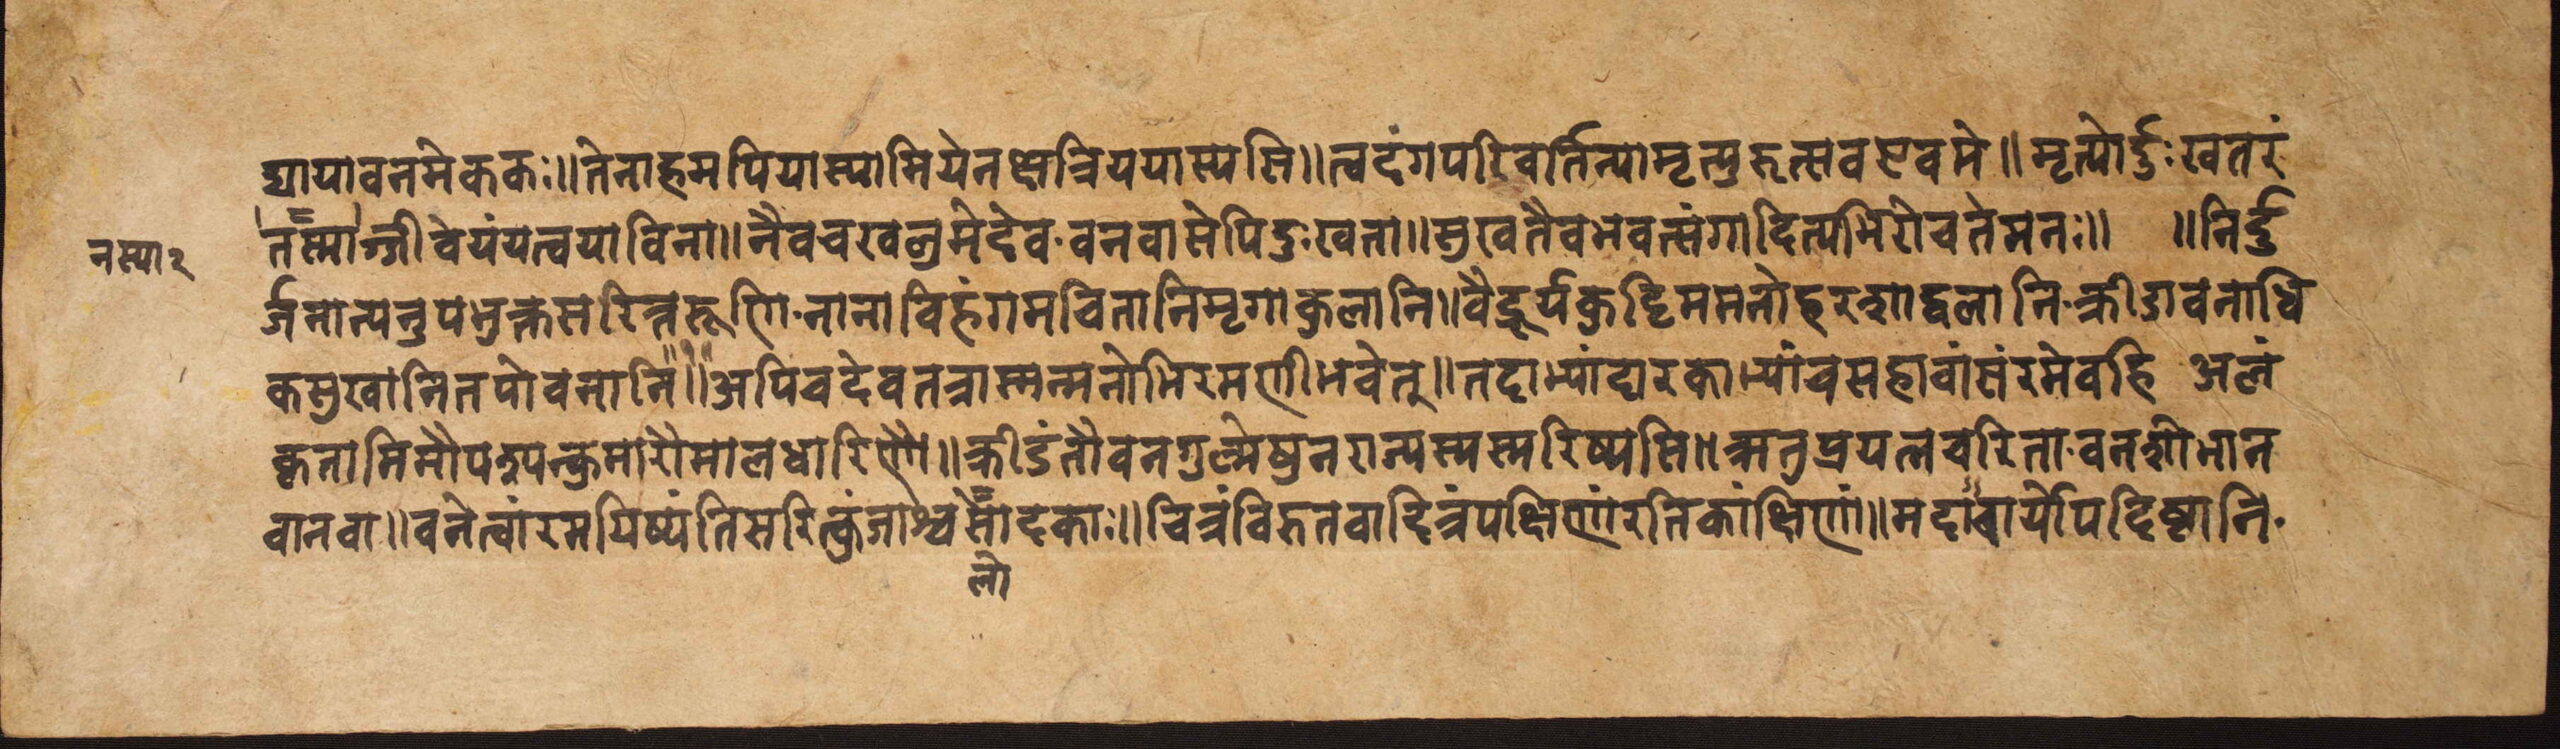 द्यायावनमेककः॥तेनाहमपियास्यामियेनक्षत्रिययास्यसि॥त्वदंगपरिवर्तिन्यामृत्युरुत्सवएवमे॥मृत्योर्दुःखतरं
तस्माज्जीवेयंयत्वयाविना॥नैवचखलुमेदेव·वनवासेपिदुःखता॥सुखतैवभवत्संगादित्यभिरोचतेमनः॥ ॥निर्दु
नस्या२
र्जनान्यनुपभुक्तसरित्तरूणि·नानाविहंगमचितानिमृगाकुलानि॥वैदूर्यकुट्टिममनोहरशाद्वलानि·क्रीडावनाधि
कसुखानितपोवनानि॥अपिचदेवतत्रास्मन्मनोभिरमणीभवेत्॥तदाभ्यांदारकाभ्यांचसहावांसंरमेवहि अलं
कृतामिमौपश्यन्कुमारौमालधारिणौ॥क्रीडंतौवनगुल्मेषुनराज्यस्यस्मरिष्यसि॥ऋतुप्रयत्नचरिता·वनशोभान
वानवा॥वनेत्वांरमयिष्यंतिसरित्कुंजाश्चसोदकाः॥चित्रंविरुतवादित्रंपक्षिणांरतिकांक्षिणां॥मदाचार्योपदिष्टानि·
लो